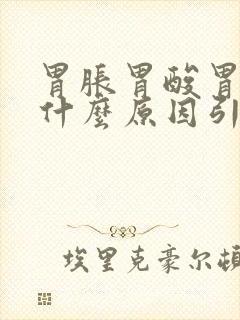 胃脹胃酸胃
什麼原因引
埃里克豪尔頓